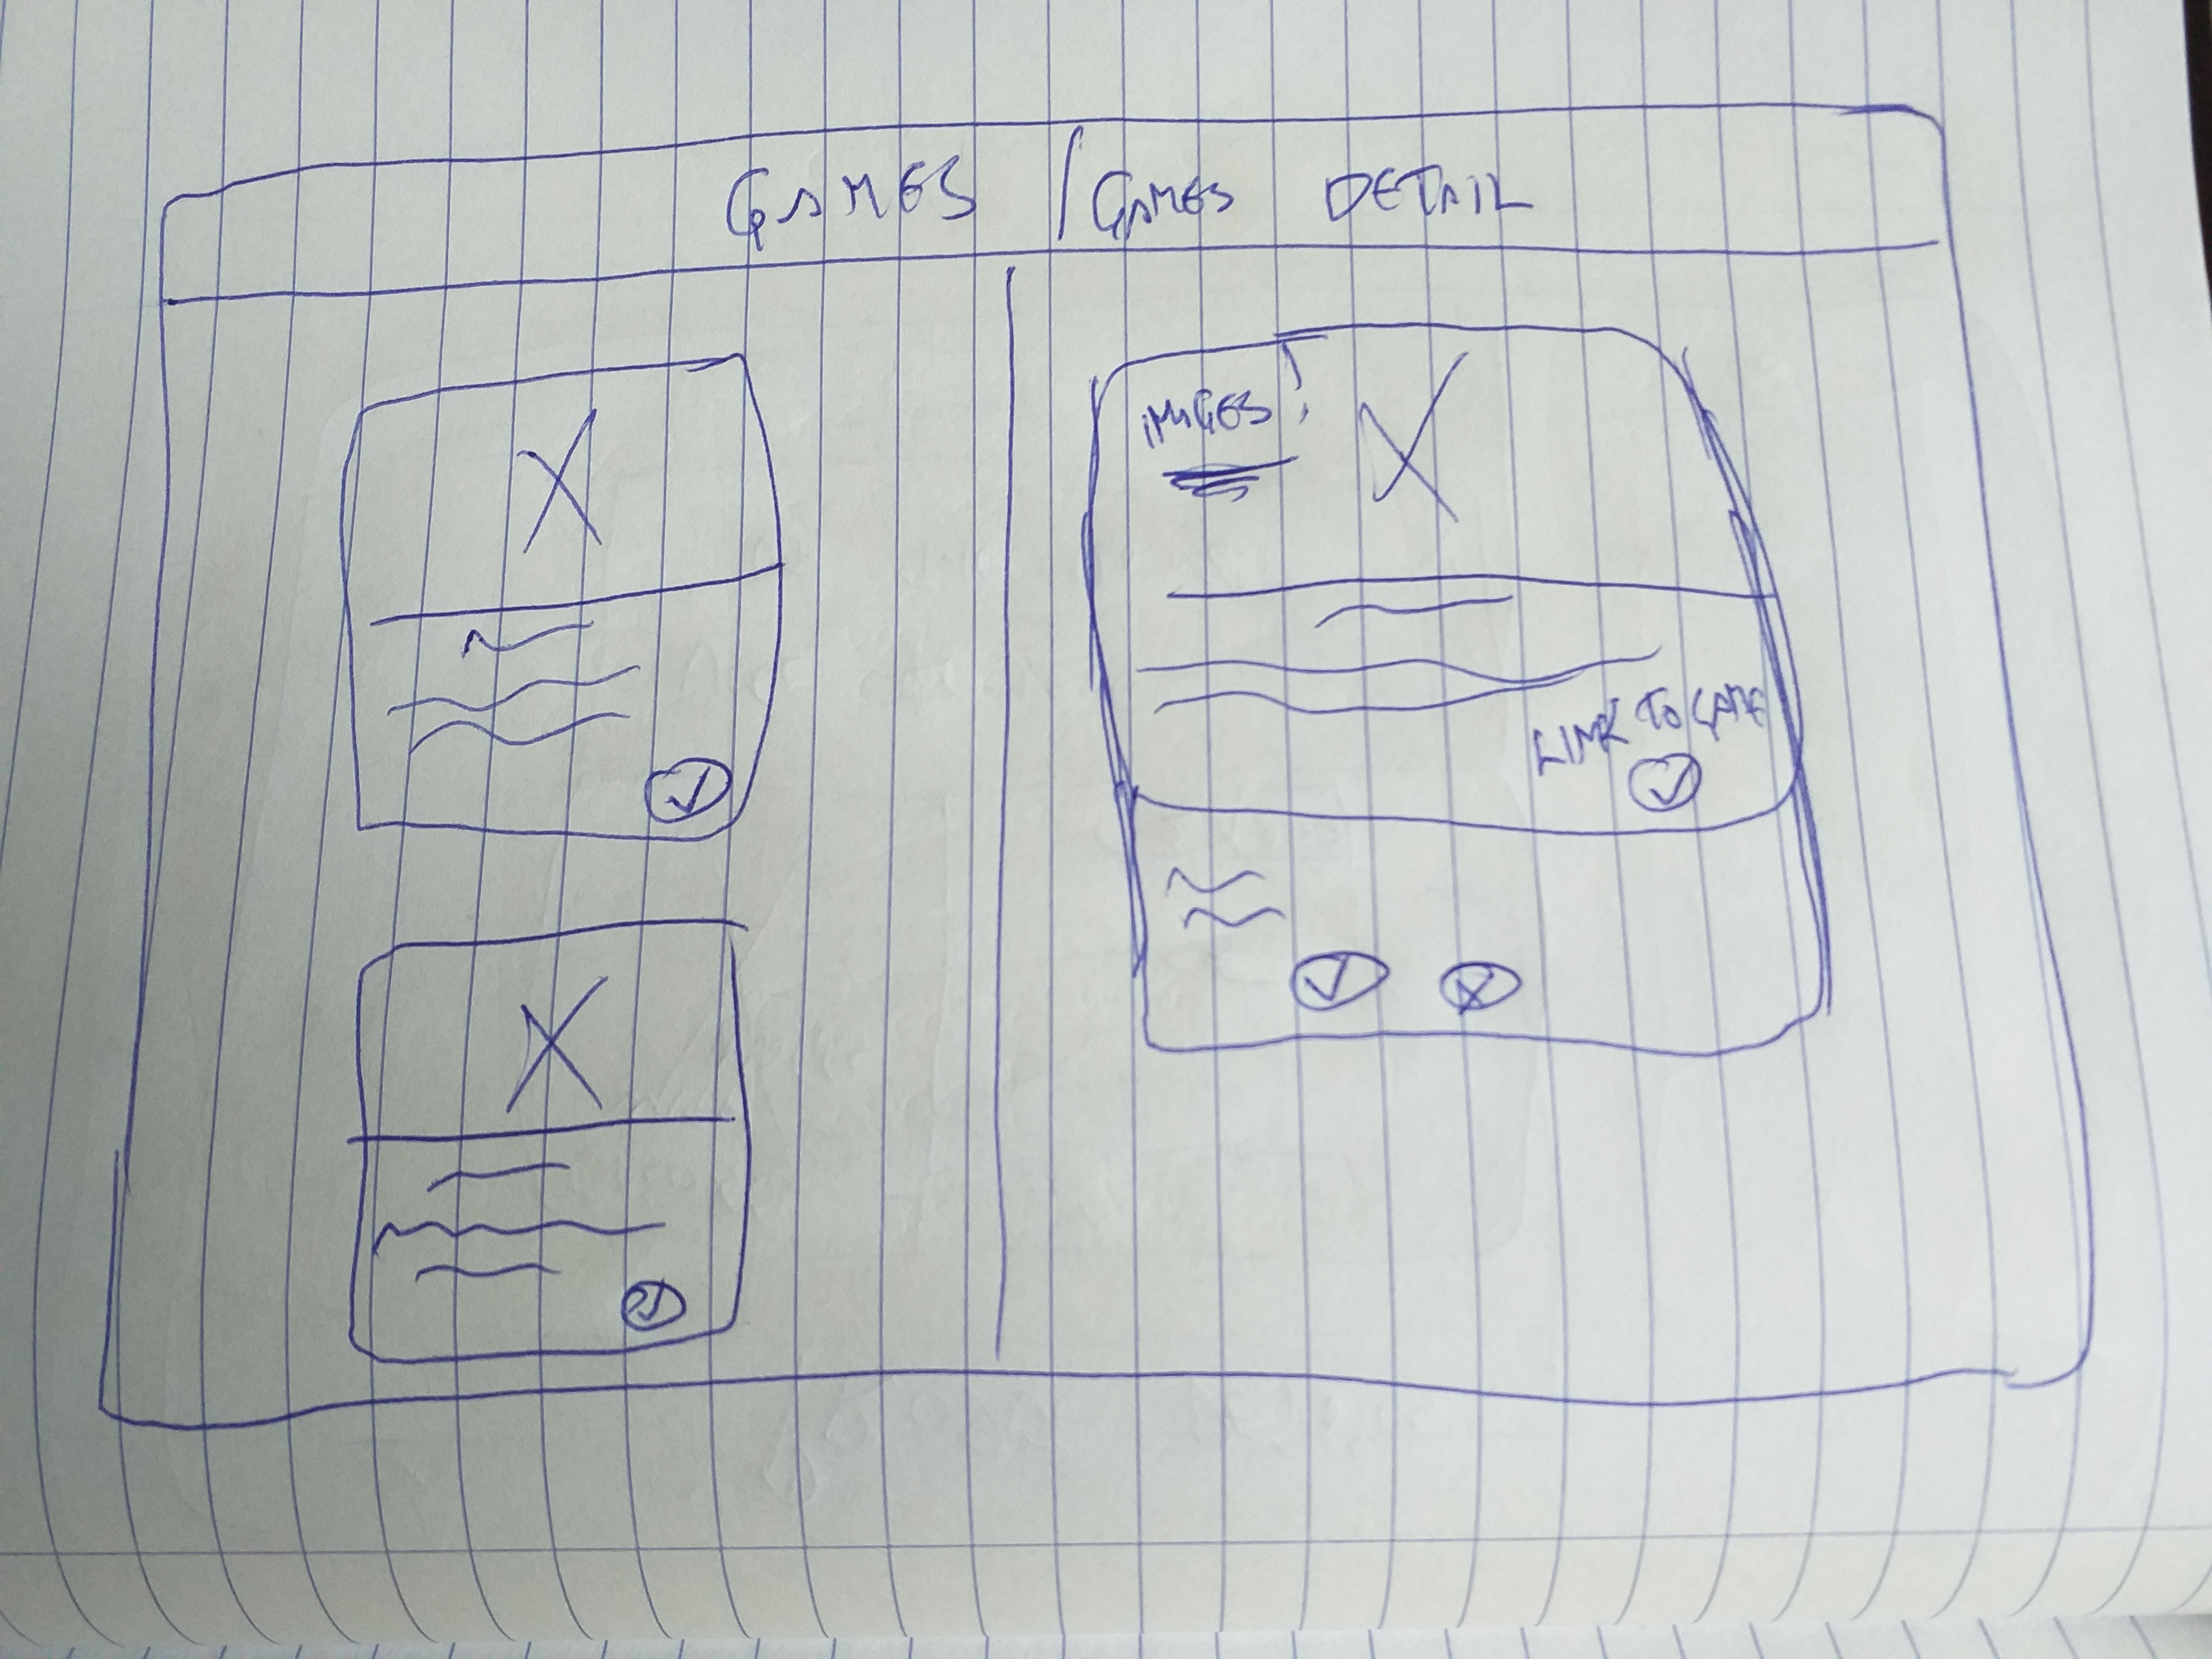 GAMES / GAMES DETAIL
IMAGES!
LINK TO GAME